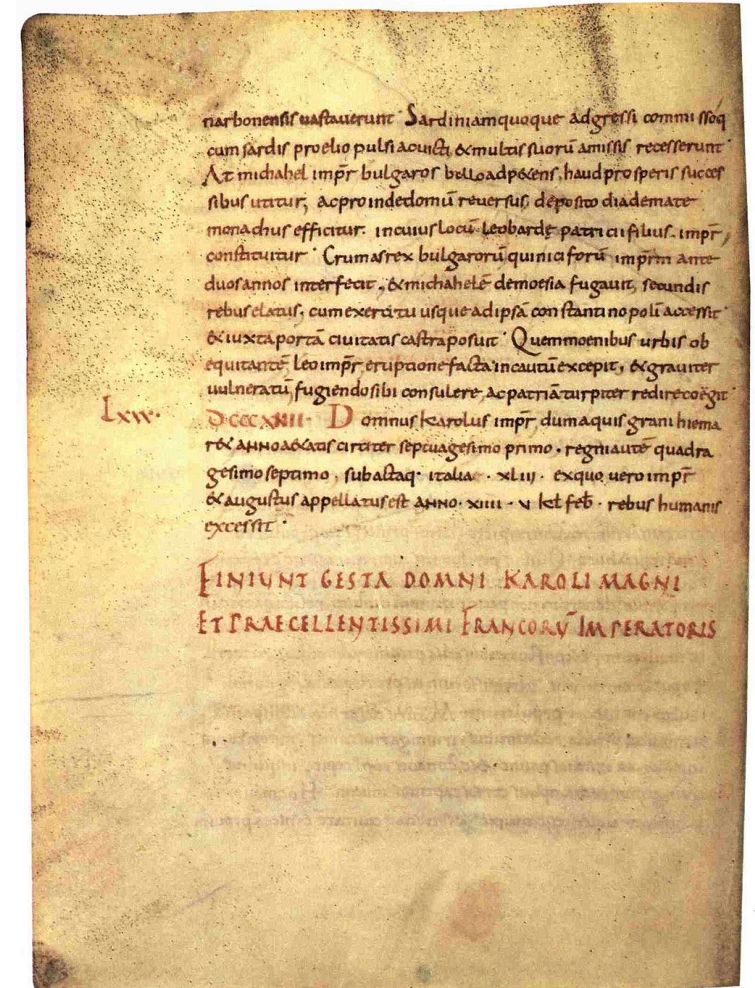 narbonensis uastauerunt· Sardiniam quoque adgressi commissoq
cum sardis proelio pulsi acuicti & multis suorū amissis recesserunt·
At michahel impr̄ bulgaros bello adp&ens, haud prosperis succes
sibus utitur, ac proinde domū reuersus, deposito diademate
monachus efficitur. in cuius locū leo bardę patricii filius. impr̄,
constituitur· Crumas rex bulgarorū qui niciforū impr̄m ante
duos annos interfecit, & michahelē de moesia fugauit, secundis
rebus elatus, cum exercitu usque ad ipsā constantinopolī accessit·
& iuxta portā ciuitatis castra posuit· Quem moenibus urbis ob
equitantē, leo impr̄, eruptione facta incautū excepit, & grauiter
uulneratū, fugiendo sibi consulere ac patriā turpiter redire coëgit·
Lxvv·
DCCCXIIII· Domnus karolus impr̄, dum aquisgrani hiema
r& anno aetatis circiter septuagesimo primo · regni autē quadra
gesimo septimo , subactaq· italia · xliii · ex quo uero impr̄
& augustus appellatus est anno · xiiii · v kł feb̄ · rebus humanis
excessit·
FINIUNT GESTA DOMNI KAROLI MAGNI
ET PRAECELLENTISSIMI FRANCORŪ IMPERATORIS